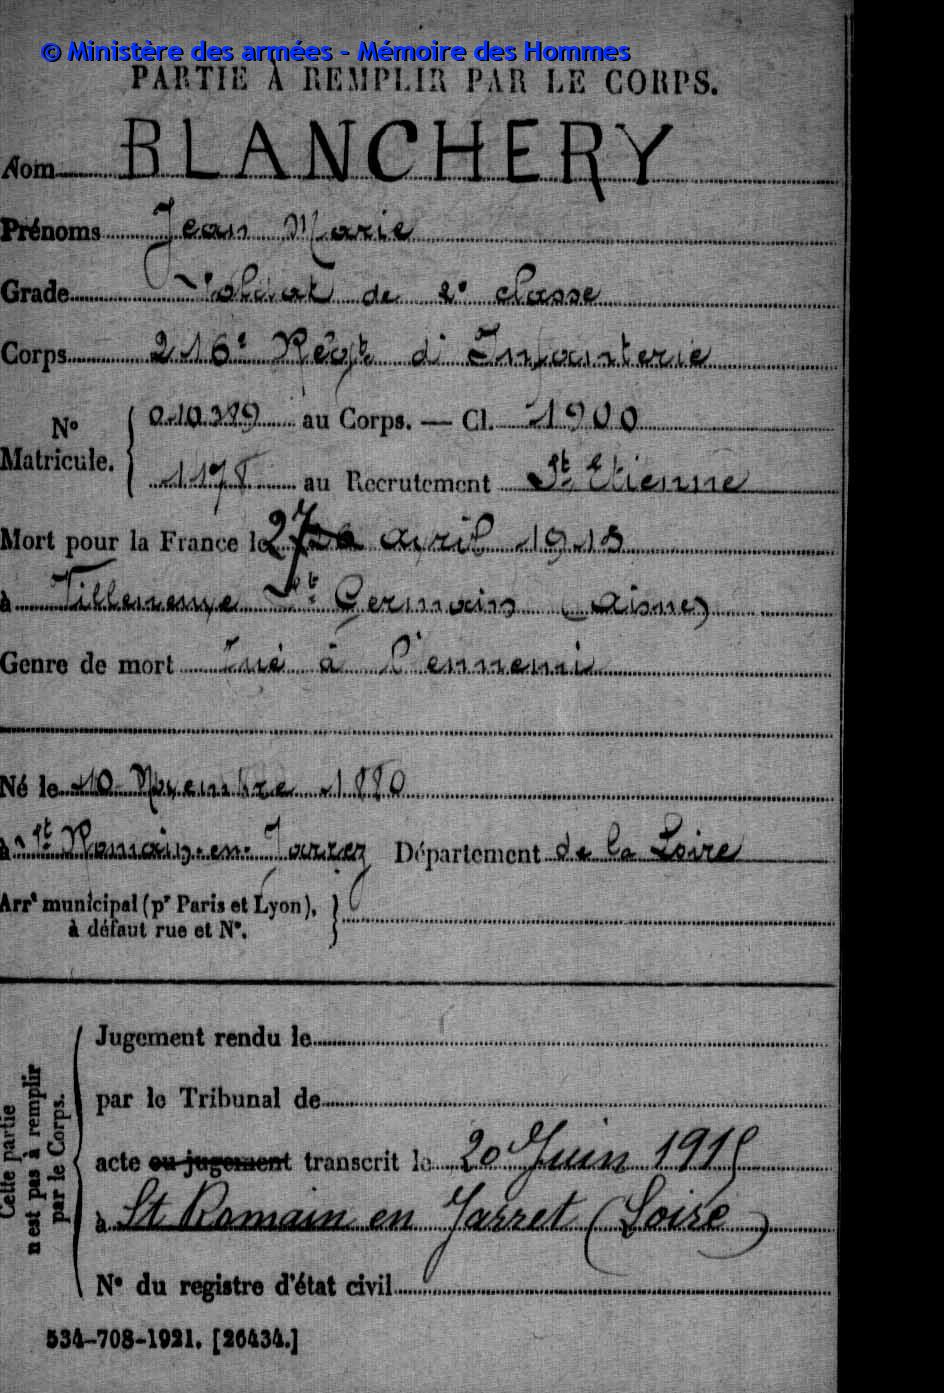 © Ministère des armées - Mémoire des Hommes
PARTIE À REMPLIR PAR LE CORPS.
Nom BLANCHERY
Prénoms Jean Marie
Grade Soldat de 2e classe
Corps 216e Régt d'Infanterie
N° Matricule. { 010.389 au Corps. — Cl. 1900
1178 au Recrutement St Etienne
Mort pour la France le 27 avril 1915
à Villeneuve St Germain (Aisne)
Genre de mort Tué à l'ennemi
Né le 10 Novembre 1880
à St Romain-en-Jarrez Département de la Loire
Arrt municipal (pr Paris et Lyon),
à défaut rue et N°.
Cette partie n'est pas à remplir par le Corps.
Jugement rendu le
par le Tribunal de
acte ou jugement transcrit le 20 Juin 1915
à St Romain en Jarret (Loire)
N° du registre d'état civil
534-708-1921. [26434.]